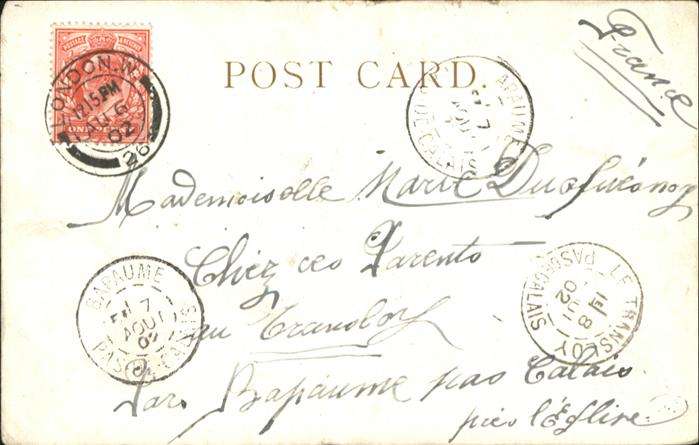 POSTAGE REVENUE
ONE PENNY
LONDON. W.
1.15 PM
AU 6
02
26
POST CARD.
France
BAPAUME
7
AOUT
PAS DE CALAIS
Mademoiselle Marie
Chez ses Parents
au Transloy
par Bapaume pas Calais
près l'Église
BAPAUME
7
AOUT
02
LE TRANSLOY
PAS DE CALAIS
8
02